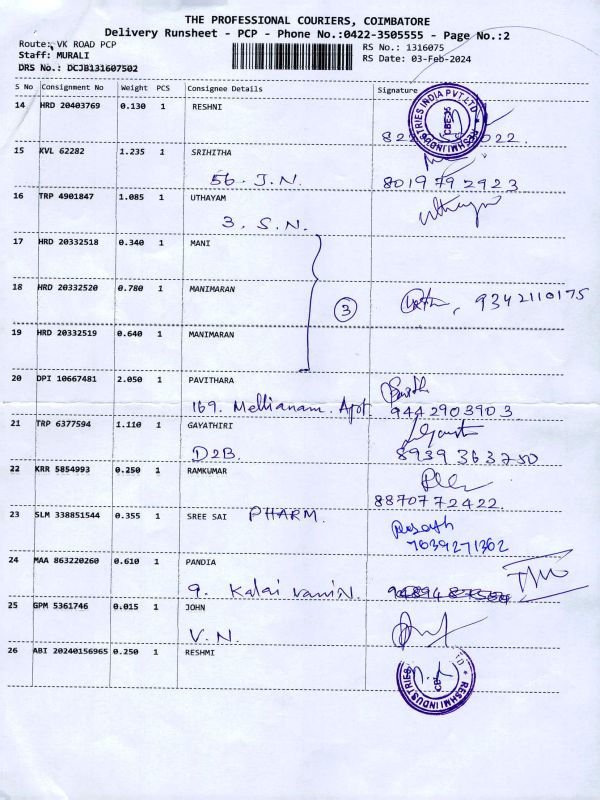 THE PROFESSIONAL COURIERS, COIMBATORE
Delivery Runsheet - PCP - Phone No.:0422-3505555 - Page No.:2
Route: VK ROAD PCP
Staff: MURALI
DRS No.: DCJB131607502
RS No.: 1316075
RS Date: 03-Feb-2024
S No Consignment No Weight PCS Consignee Details Signature
14 HRD 20403769 0.130 1 RESHNI
RESHMI INDUSTRIES INDIA PVT.LTD
15 KVL 62282 1.235 1 SRIHITHA
56. J.N. 8019792923
16 TRP 4901847 1.085 1 UTHAYAM
3. S.N.
17 HRD 20332518 0.340 1 MANI
18 HRD 20332520 0.780 1 MANIMARAN
3 9342110175
19 HRD 20332519 0.640 1 MANIMARAN
20 DPI 10667481 2.050 1 PAVITHARA
169. Mellianam. Apt 9442903903
21 TRP 6377594 1.110 1 GAYATHIRI
D2B. 8939363750
22 KRR 5854993 0.250 1 RAMKUMAR
8870772422
23 SLM 338851544 0.355 1 SREE SAI PHARM.
7639271362
24 MAA 863220260 0.610 1 PANDIA
9. Kalai vani N.
25 GPM 5361746 0.015 1 JOHN
V.N.
26 ABI 20240156965 0.250 1 RESHMI
RESHMI INDUSTRIES